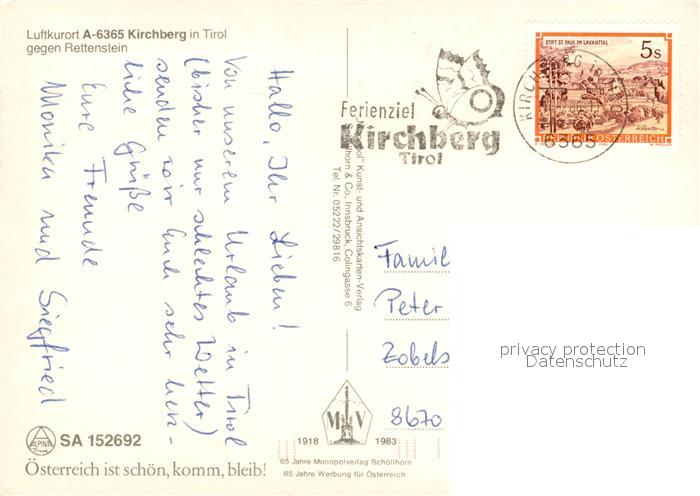 Luftkurort A-6365 Kirchberg in Tirol
gegen Rettenstein
Hallo, Ihr Lieben!
Von unserem Urlaub in Tirol
(bisher nur schlechtes Wetter)
senden wir Euch sehr herz-
liche Grüße
Eure Freunde
Monika und Siegfried
Ferienziel
Kirchberg
Tirol
STIFT ST. PAUL IM LAVANTTAL
5s
REPUBLIK ÖSTERREICH
6365
Kunst- und Ansichtskarten-Verlag
& Co., Innsbruck, Colingasse 6
Tel. Nr. 05222/29816
Famil
Peter
Zobels
8670
privacy protection
Datenschutz
M V
1918 1983
65 Jahre Monopolverlag Schöllhorn
65 Jahre Werbung für Österreich
ALPINA
SA 152692
Österreich ist schön, komm, bleib!